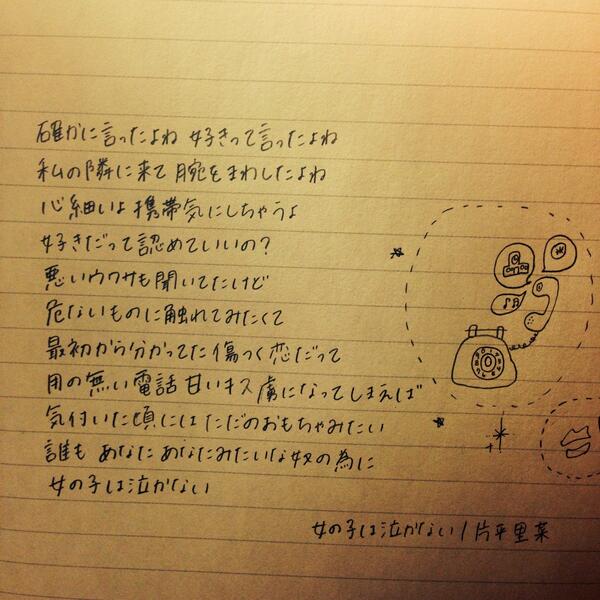 確かに言ったよね 好きって言ったよね
私の隣に来て 腕をまわしたよね
心細いよ 携帯気にしちゃうよ
好きだって認めていいの?
悪いウワサも聞いてたけど
危ないものに触れてみたくて
最初から分かってた 傷つく恋だって
用の無い電話 甘いキス 虜になってしまえば
気付いた頃にはただのおもちゃみたい
誰も あなた あなたみたいな奴の為に
女の子は泣かない
女の子は泣かない / 片平里菜